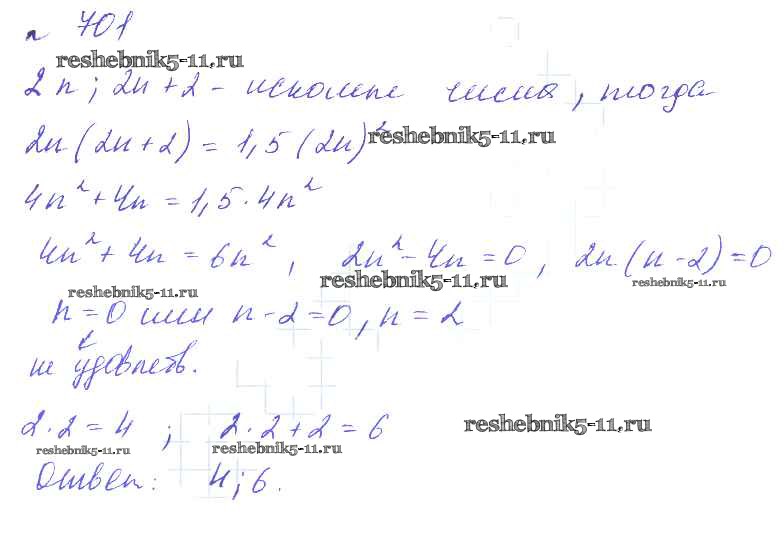 № 701
reshebnik5-11.ru
2n; 2n+2 - искомые числа, тогда
2n(2n+2) = 1,5(2n)² reshebnik5-11.ru
4n² + 4n = 1,5·4n²
4n² + 4n = 6n², 2n² - 4n = 0, 2n(n-2) = 0
reshebnik5-11.ru reshebnik5-11.ru reshebnik5-11.ru
n = 0 или n - 2 = 0, n = 2
не удовлетв.
2·2 = 4 ; 2·2+2 = 6 reshebnik5-11.ru
reshebnik5-11.ru reshebnik5-11.ru
Ответ: 4; 6.